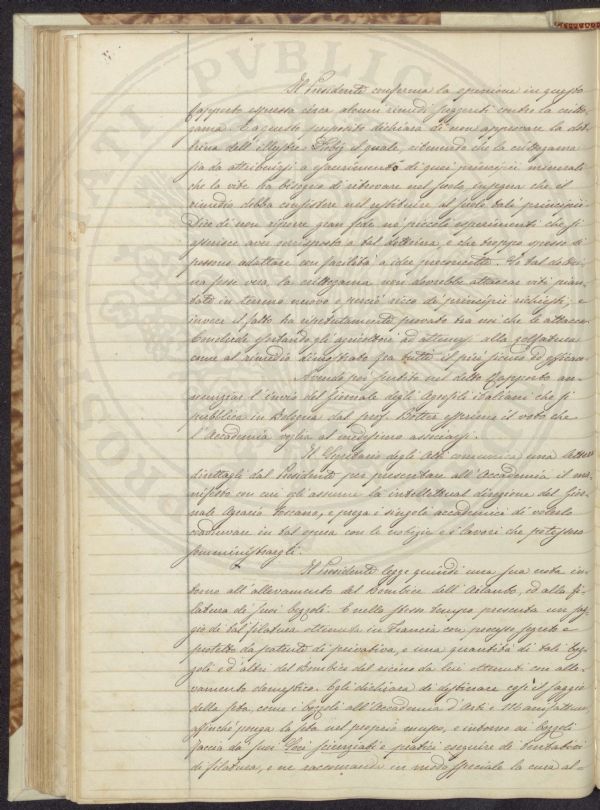 Il Presidente conferma la opinione in questo
rapporto espressa circa alcuni rimedi suggeriti contro la critto
gama. E a questo proposito dichiara di non approvare la dot
trina dell'illustre il quale, ritenendo che la crittogama
sia da attribuirsi a esaurimento di quei principii minerali
che la vite ha bisogno di ritrovare nel suolo, insegna che il
rimedio debba consistere nel restituire al suolo tali principii.
Dice di non riporre gran fede ne' piccoli esperimenti che si
asserisce aver corrisposto a tal dottrina, e che troppo spesso si
possono adattare con facilità a idee preconcette. Se tal dottri
na fosse vera, la crittogama non dovrebbe attaccar viti pian
tate in terreno nuovo e perciò ricco dei principii richiesti; e
invece il fatto ha ripetutamente provato tra noi che le attacca.
Conclude esortando gli agricoltori ad attenersi alla zolfatura
come al rimedio dimostrato fra tutti il più sicuro ed efficace.
Avendo poi sentito nel detto Rapporto an
nunziar l'invio del Giornale degli Agrofili italiani che si
pubblica in Bologna dal prof. Botter esprime il voto che
l'Accademia voglia al medesimo associarsi.
Il Segretario degli Atti comunica una lettera
direttagli dal Presidente per presentare all'Accademia il ma
nifesto con cui egli assume la intellettual direzione del Gior
nale Agrario Toscano, e prega i singoli accademici di volerlo
coadiuvare in tal opera con le notizie e i lavori che potessero
somministrargli.
Il Presidente legge quindi una sua nota in
torno all'allevamento del Bombice dell'Ailanto, ed alla fi
latura de' suoi bozzoli. E nello stesso tempo presenta un sag
gio di tal filatura ottenuta in Francia con processo segreto e
protetto da patente di privativa, e una quantità di tali boz
zoli e d'altri del Bombice del ricino da lui ottenuti con alle
vamento domestico. Egli dichiara di destinare così il saggio
della seta, come i bozzoli all'Accademia d'Arti e Manifatture
affinchè ponga la seta nel proprio museo, e intorno ai bozzoli
faccia da' suoi Soci scienziati e pratici eseguire de' tentativi
di filatura, e ne raccomanda in modo speciale la cura al-